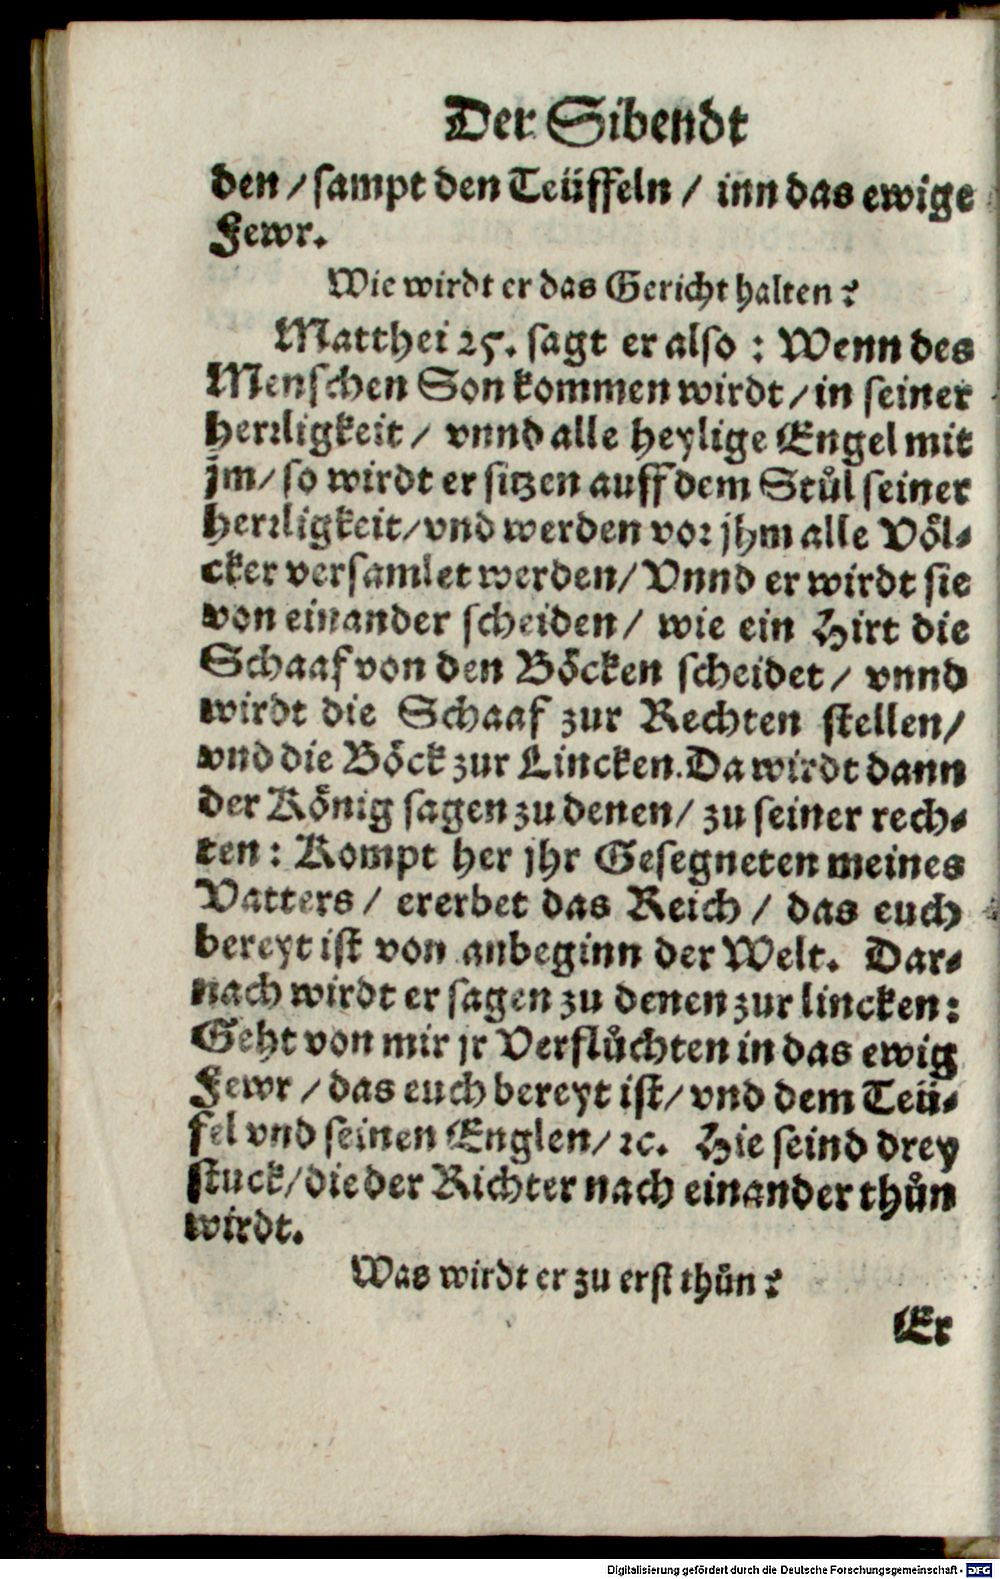 Der Sibendt
den / sampt den Teüffeln / inn das ewige
Fewr.
Wie wirdt er das Gericht halten?
Matthei 25. sagt er also : Wenn des
Menschen Son kommen wirdt / in seiner
herrligkeit / vnnd alle heylige Engel mit
jm / so wirdt er sitzen auff dem Stůl seiner
herrligkeit / vnd werden vor jhm alle Völ-
cker versamlet werden / Vnnd er wirdt sie
von einander scheiden / wie ein Hirt die
Schaaf von den Böcken scheidet / vnnd
wirdt die Schaaf zur Rechten stellen /
vnd die Böck zur Lincken. Da wirdt dann
der König sagen zu denen / zu seiner rech-
ten : Kompt her jhr Gesegneten meines
Vatters / ererbet das Reich / das euch
bereyt ist von anbeginn der Welt. Dar-
nach wirdt er sagen zu denen zur lincken:
Geht von mir jr Verflůchten in das ewig
Fewr / das euch bereyt ist / vnd dem Teü-
fel vnd seinen Englen / ꝛc. Hie seind drey
stuck / die der Richter nach einander thůn
wirdt.
Was wirdt er zu erst thůn?
Er
Digitalisierung gefördert durch die Deutsche Forschungsgemeinschaft - DFG